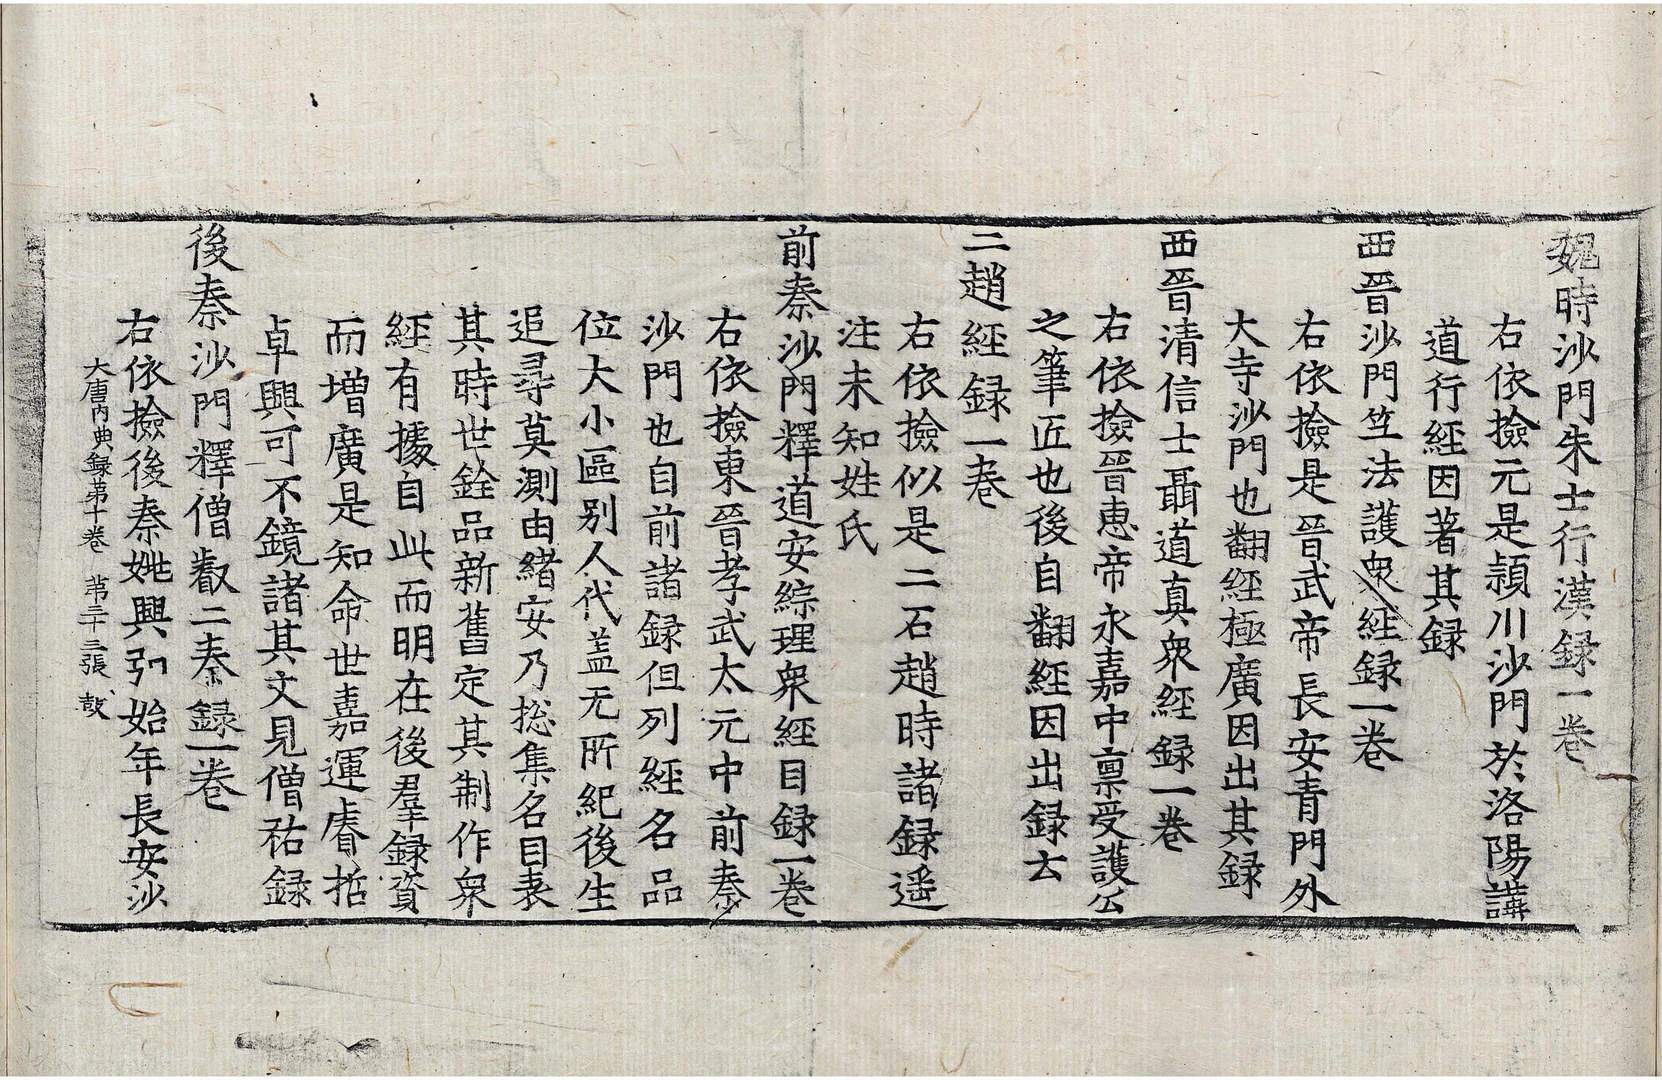 魏時沙門朱士行漢録一卷
右依撿元是頴川沙門於洛陽講
道行經因著其録
西晉沙門竺法護衆經録一卷
右依撿是晉武帝長安青門外
大寺沙門也翻經極廣因出其録
西晉清信士聶道真衆經録一卷
右依撿晉惠帝永嘉中禀受護公
之筆匠也後自翻經因出録云
二趙經録一卷
右依撿似是二石趙時諸録遥
注未知姓氏
前秦沙門釋道安綜理衆經目録一卷
右依撿東晉孝武太元中前秦
沙門也自前諸録但列經名品
位大小區别人代盖无所紀後生
追尋莫測由緒安乃捴集名目表
其時世銓品新舊定其制作衆
經有據自此而明在後羣録資
而增廣是知命世嘉運睿哲
卓興可不鏡諸其文見僧祐録
後秦沙門釋僧叡二秦録一卷
右依撿後秦姚興弘始年長安沙
大唐内典録苐十卷　苐二十三張　鼓